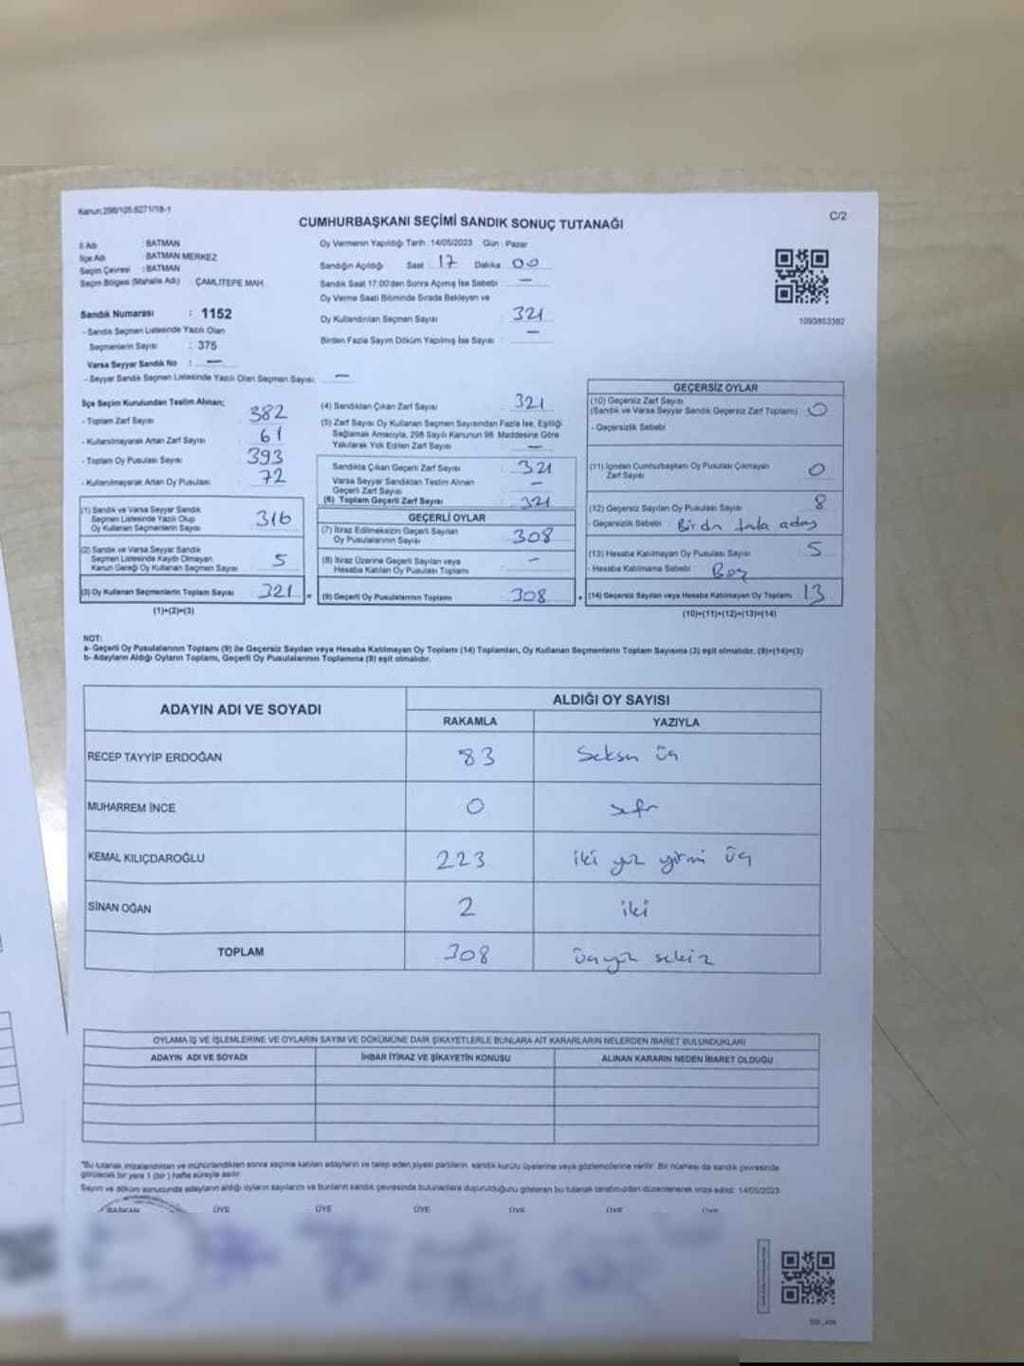 Kanun:298/105.6271/18-1
C/2
CUMHURBAŞKANI SEÇİMİ SANDIK SONUÇ TUTANAĞI
İl Adı : BATMAN
İlçe Adı : BATMAN MERKEZ
Seçim Çevresi : BATMAN
Seçim Bölgesi (Mahalle Adı) : ÇAMLITEPE MAH.
Sandık Numarası : 1152
- Sandık Seçmen Listesinde Yazılı Olan
Seçmenlerin Sayısı : 375
Varsa Seyyar Sandık No : —
- Seyyar Sandık Seçmen Listesinde Yazılı Olan Seçmen Sayısı: —
Oy Vermenin Yapıldığı Tarih :14/05/2023 Gün : Pazar
Sandığın Açıldığı Saat 17 Dakika 00
Sandık Saat 17.00'den Sonra Açılmış İse Sebebi —
Oy Verme Saati Bitiminde Sırada Bekleyen ve
Oy Kullandırılan Seçmen Sayısı : 321
Birden Fazla Sayım Döküm Yapılmış İse Sayısı : —
1093853362
İlçe Seçim Kurulundan Teslim Alınan;
- Toplam Zarf Sayısı 382
- Kullanılmayarak Artan Zarf Sayısı 61
- Toplam Oy Pusulası Sayısı 393
- Kullanılmayarak Artan Oy Pusulası 72
(1) Sandık ve Varsa Seyyar Sandık
Seçmen Listesinde Yazılı Olup
Oy Kullanan Seçmenlerin Sayısı 316
(2) Sandık ve Varsa Seyyar Sandık
Seçmen Listesinde Kayıtlı Olmayan
Kanun Gereği Oy Kullanan Seçmen Sayısı 5
(3) Oy Kullanan Seçmenlerin Toplam Sayısı 321
(1)+(2)=(3)
(4) Sandıktan Çıkan Zarf Sayısı 321
(5) Zarf Sayısı Oy Kullanan Seçmen Sayısından Fazla İse, Eşitliği
Sağlamak Amacıyla, 298 Sayılı Kanunun 98. Maddesine Göre
Yakılarak Yok Edilen Zarf Sayısı —
Sandıkta Çıkan Geçerli Zarf Sayısı 321
Varsa Seyyar Sandıktan Teslim Alınan
Geçerli Zarf Sayısı —
(6) Toplam Geçerli Zarf Sayısı 321
GEÇERLİ OYLAR
(7) İtiraz Edilmeksizin Geçerli Sayılan
Oy Pusulalarının Sayısı 308
(8) İtiraz Üzerine Geçerli Sayılan veya
Hesaba Katılan Oy Pusulaları Toplamı —
(9) Geçerli Oy Pusulalarının Toplamı 308
GEÇERSİZ OYLAR
(10) Geçersiz Zarf Sayısı
(Sandık ve Varsa Seyyar Sandık Geçersiz Zarf Toplamı) 0
- Geçersizlik Sebebi
(11) İçinden Cumhurbaşkanı Oy Pusulası Çıkmayan
Zarf Sayısı 0
(12) Geçersiz Sayılan Oy Pusulası Sayısı 8
- Geçersizlik Sebebi : Birden fazla aday
(13) Hesaba Katılmayan Oy Pusulası Sayısı 5
- Hesaba Katılmama Sebebi : Boş
(14) Geçersiz Sayılan veya Hesaba Katılmayan Oy Toplamı 13
(10)+(11)+(12)+(13)=(14)
NOT:
a- Geçerli Oy Pusulalarının Toplamı (9) ile Geçersiz Sayılan veya Hesaba Katılmayan Oy Toplamı (14) Toplamları, Oy Kullanan Seçmenlerin Toplam Sayısına (3) eşit olmalıdır. (9)+(14)=(3)
b- Adayların Aldığı Oyların Toplamı, Geçerli Oy Pusulalarının Toplamına (9) eşit olmalıdır.
ADAYIN ADI VE SOYADI ALDIĞI OY SAYISI
RAKAMLA YAZIYLA
RECEP TAYYİP ERDOĞAN 83 Seksen üç
MUHARREM İNCE 0 sıfır
KEMAL KILIÇDAROĞLU 223 iki yüz yirmi üç
SİNAN OĞAN 2 iki
TOPLAM 308 üçyüz sekiz
OYLAMA İŞ VE İŞLEMLERİNE VE OYLARIN SAYIM VE DÖKÜMÜNE DAİR ŞİKAYETLERLE BUNLARA AİT KARARLARIN NELERDEN İBARET BULUNDUKLARI
ADAYIN ADI VE SOYADI İHBAR İTİRAZ VE ŞİKAYETİN KONUSU ALINAN KARARIN NEDEN İBARET OLDUĞU
*Bu tutanak imzalandıktan ve mühürlendikten sonra seçime katılan adayların ve talep eden siyasi partilerin sandık kurulu üyelerine veya gözlemcilerine verilir. Bir nüshası da sandık çevresinde
görülecek bir yere 1 (bir) hafta süreyle asılır.
Sayım ve döküm sonucunda adayların aldığı oyların sayılarını ve bunların sandık çevresinde bulunanlara duyurulduğunu gösteren bu tutanak tarafımızdan düzenlenerek imza edildi. 14/05/2023
BAŞKAN ÜYE ÜYE ÜYE ÜYE ÜYE ÜYE